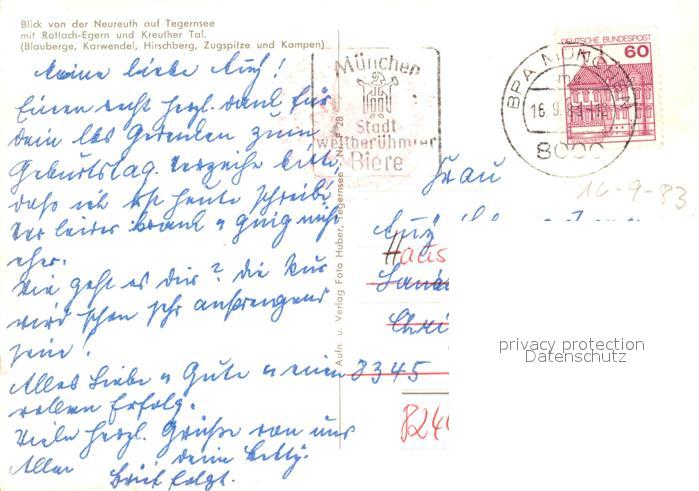 Blick von der Neureuth auf Tegernsee
mit Rottach-Egern und Kreuther Tal.
(Blauberge, Karwendel, Hirschberg, Zugspitze und Kampen)
Meine liebe
Einen recht herzl. Dank für
Dein lbs Gedenken zum
Geburtstag. Verzeihe bitte,
daß ich erst heute schreibe
War leider krank u ging nicht
eher.
Wie geht es Dir? Die Kur
wird schon sehr anstrengend
sein!
Alles Liebe u Gute u einen
vollen Erfolg.
Viele herzl. Grüße von uns
Allen Deine Betty.
Brief folgt.
Aufn. u. Verlag Foto Huber, Tegernsee
München
Stadt
weltberühmter
Biere
BPA MÜNCHEN
16.9.
8000
DEUTSCHE BUNDESPOST
60
16-9-83
Frau
Haus
8345
824
privacy protection
Datenschutz